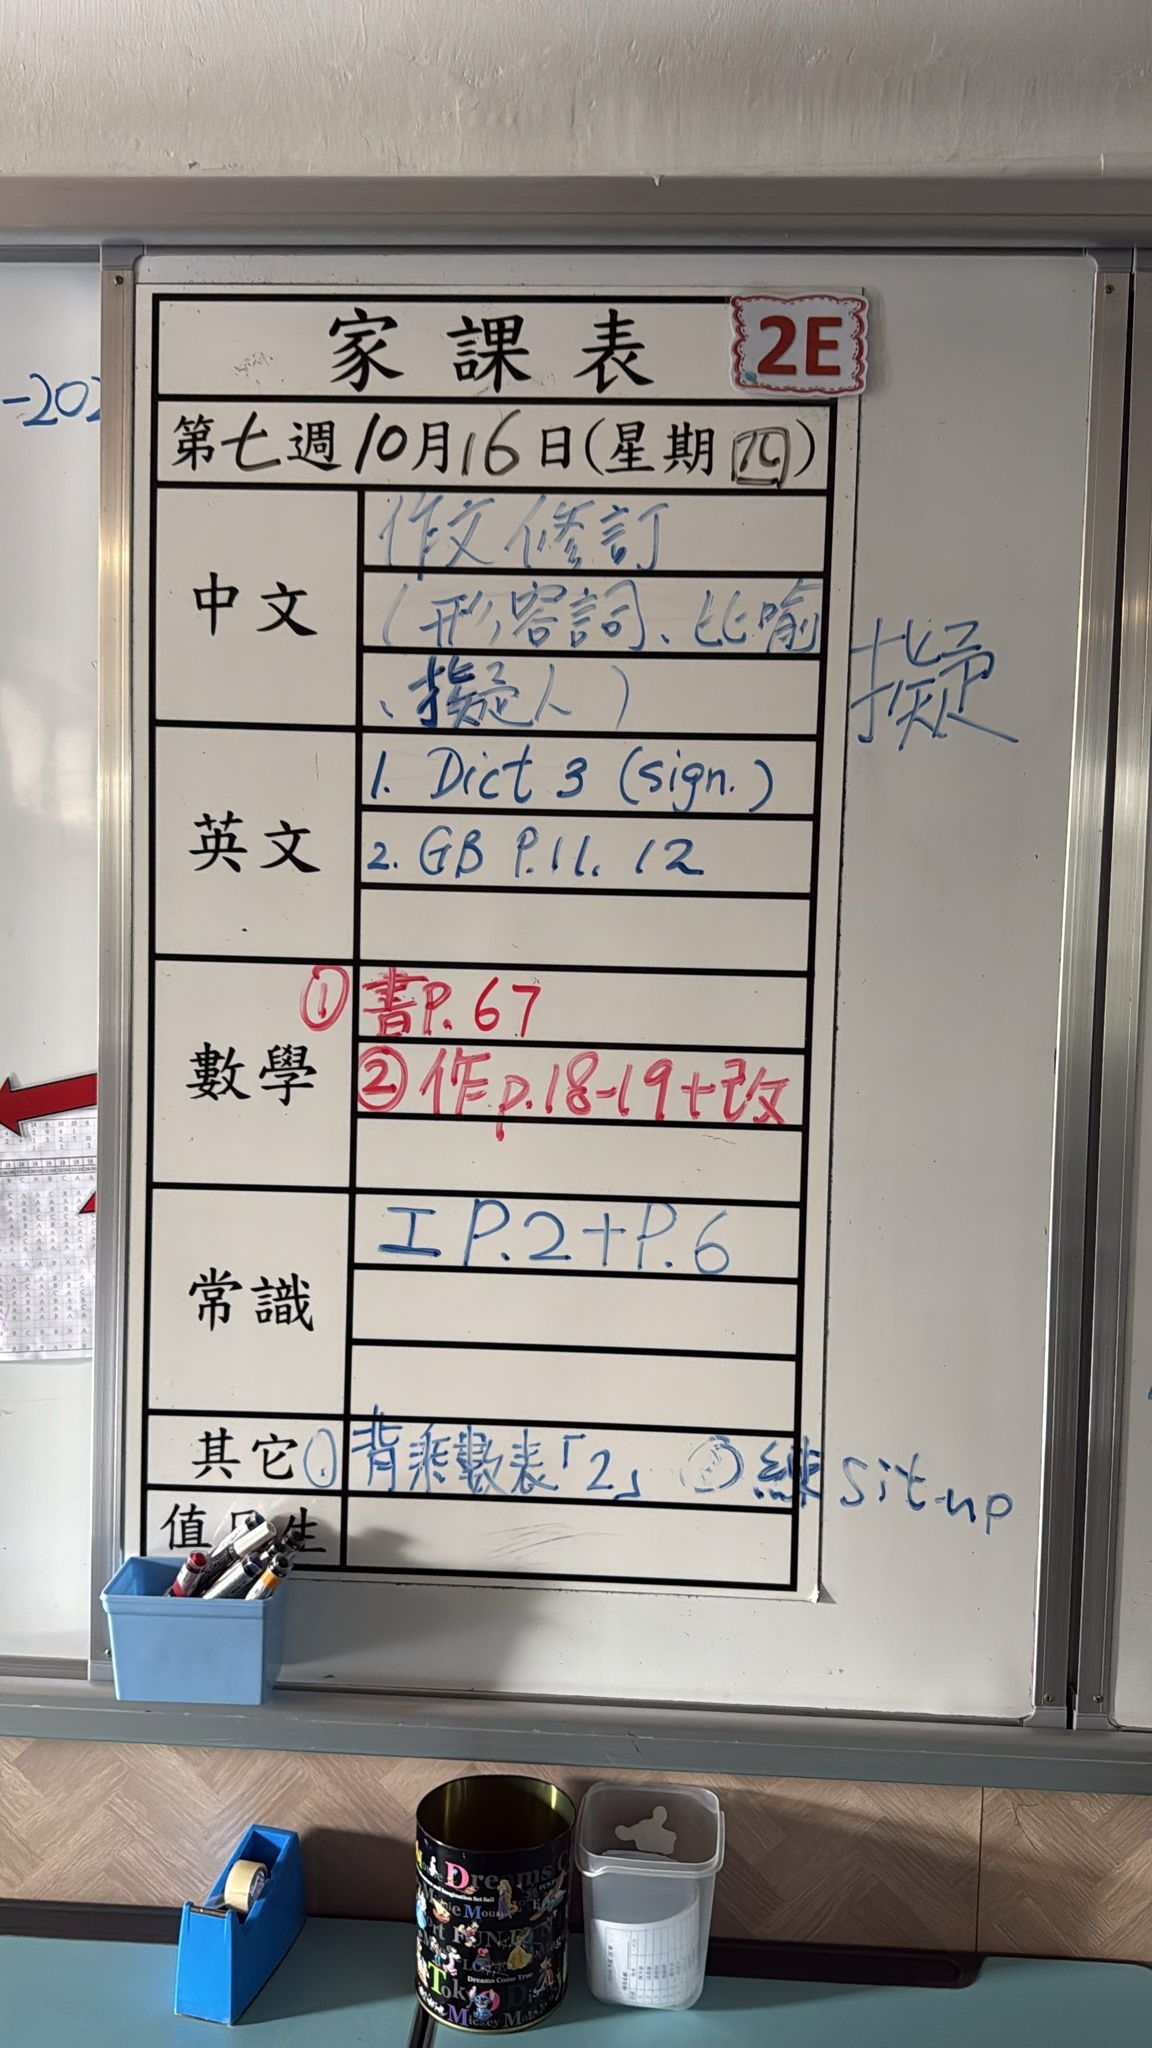 家課表
2E
第七週10月16日(星期四)
中文
作文修訂
(形容詞、比喻
、擬人)
擬
英文
1. Dict 3 (sign.)
2. GB P.11. 12
數學
① 書P.67
② 作p.18-19+改
常識
工 P.2+P.6
其它
① 背乘數表「2」 ② 練 Sit-up
值日生
-202
Dreams
Dreams Come True